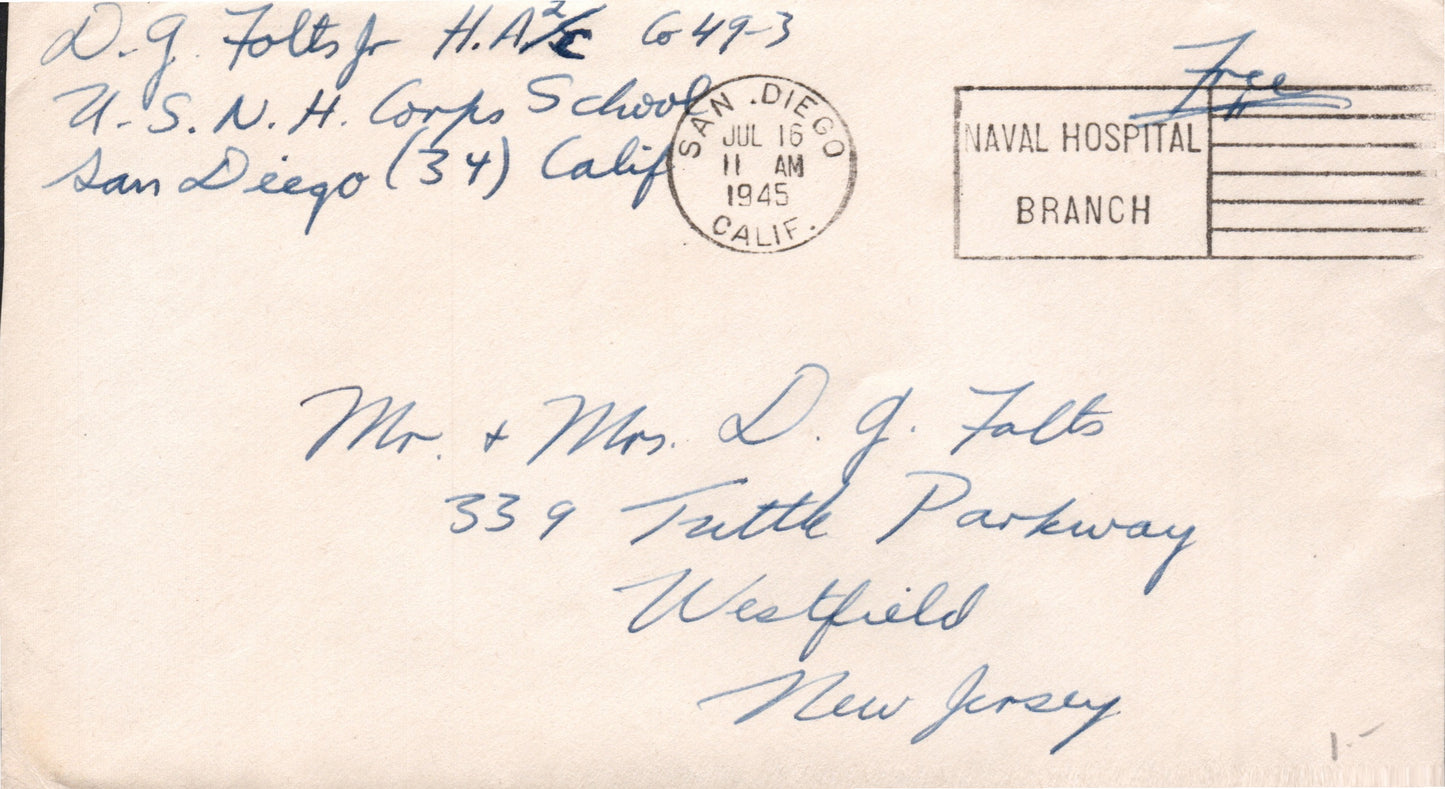 D. G. Folts Jr H.A 2/c Co 49-3
U. S. N. H. Corps School
San Diego (34) Calif
SAN DIEGO
JUL 16
11 AM
1945
CALIF.
Free
NAVAL HOSPITAL
BRANCH
Mr. + Mrs. D. G. Folts
339 Tuttle Parkway
Westfield
New Jersey
1.-